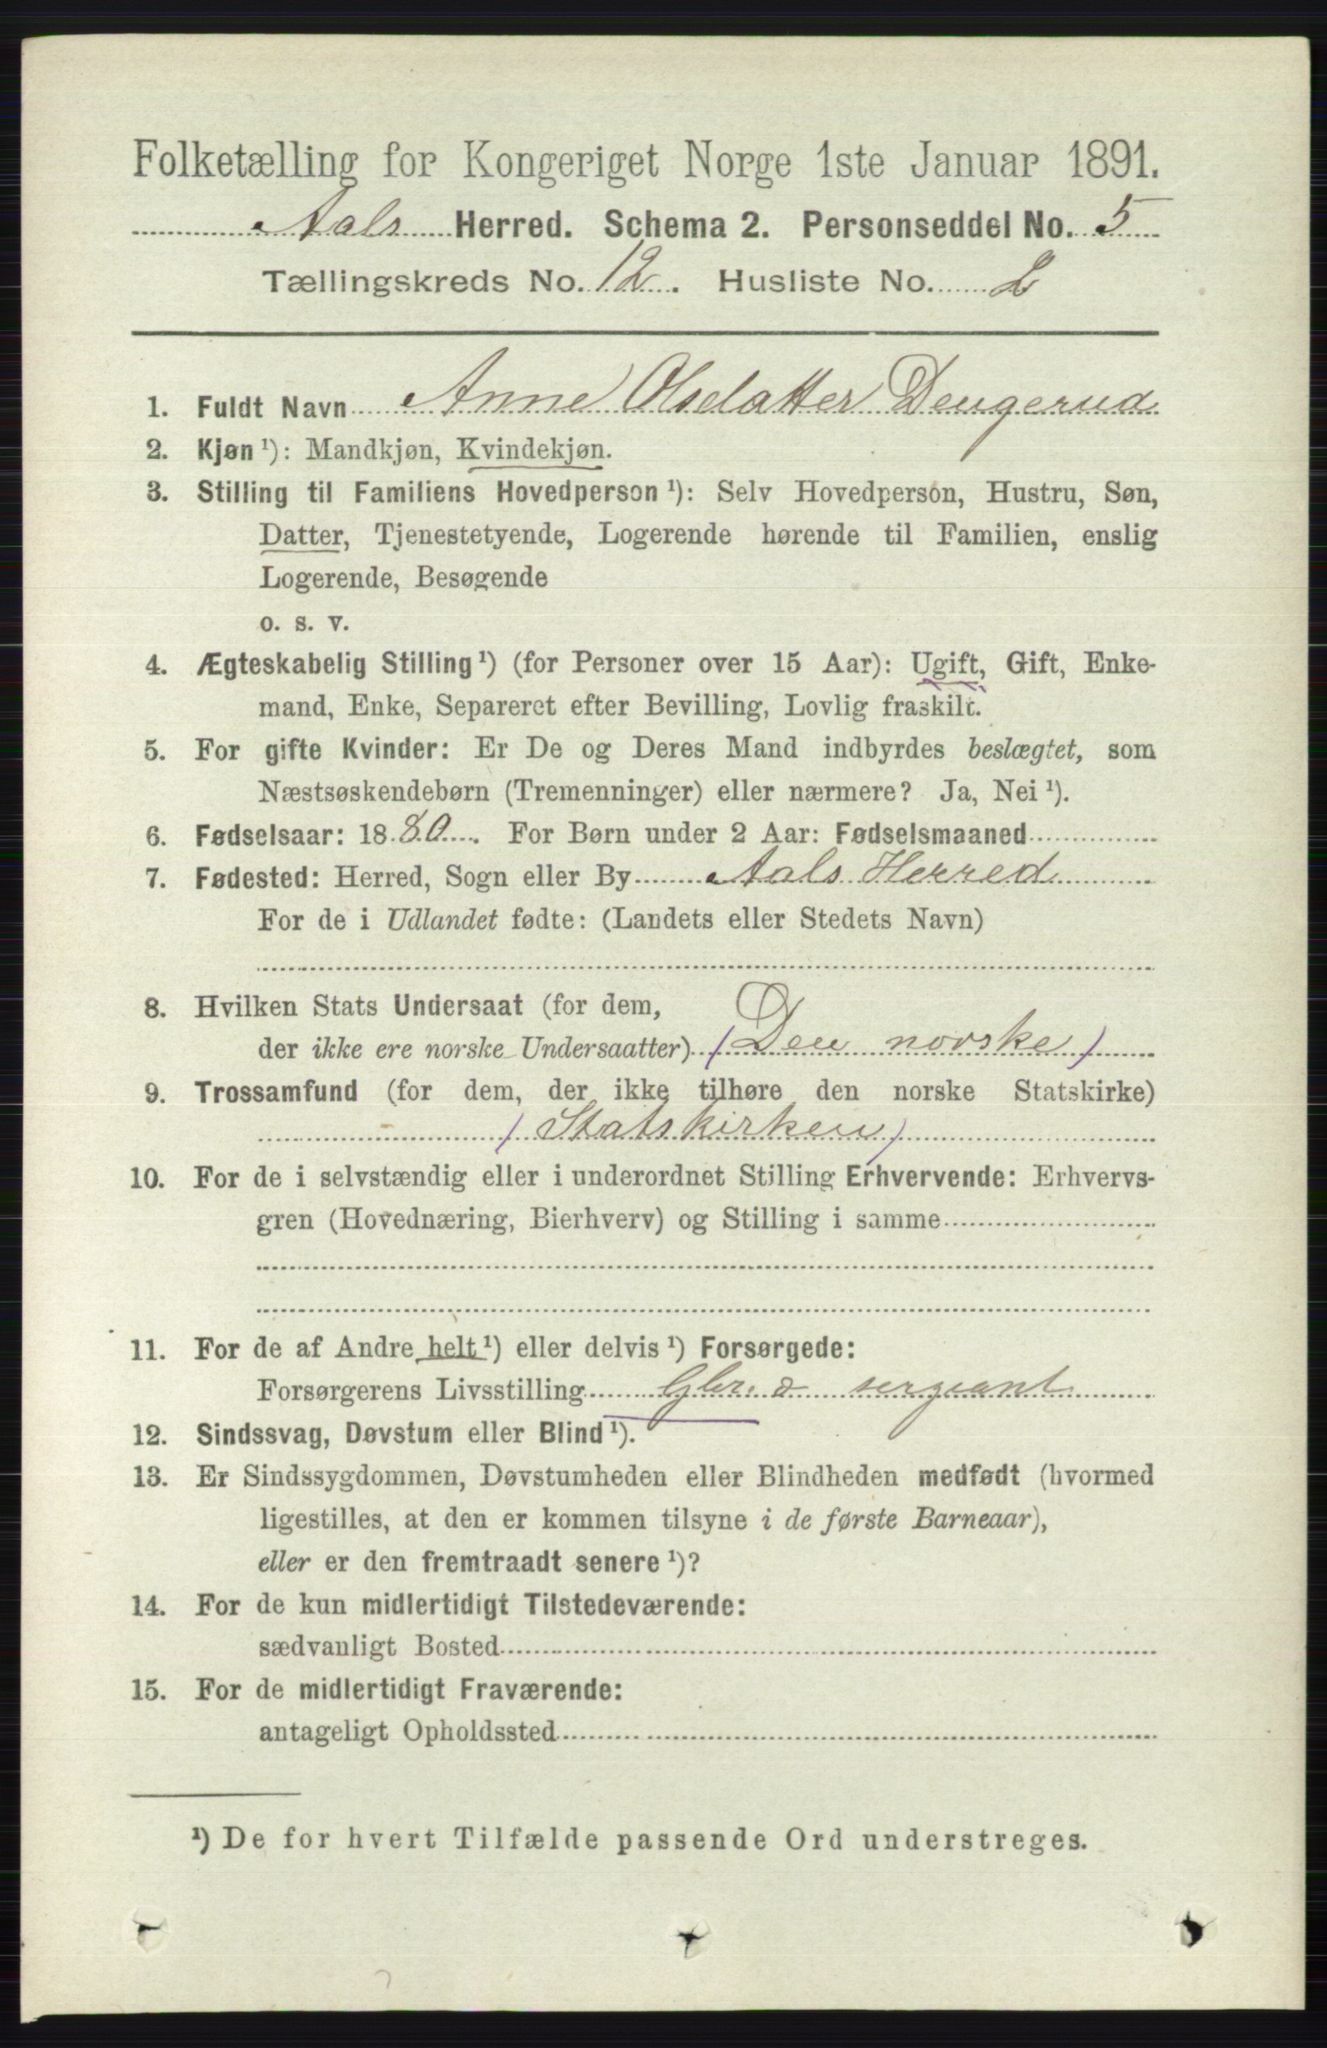 Folketælling for Kongeriget Norge 1ste Januar 1891.
Aals Herred. Schema 2. Personseddel No. 5
Tællingskreds No. 12. Husliste No. 2
1. Fuldt Navn Anne Olsdatter Dengerud
2. Kjøn ¹): Mandkjøn, Kvindekjøn.
3. Stilling til Familiens Hovedperson ¹): Selv Hovedperson, Hustru, Søn,
Datter, Tjenestetyende, Logerende hørende til Familien, enslig
Logerende, Besøgende
o. s. v.
4. Ægteskabelig Stilling ¹) (for Personer over 15 Aar): Ugift, Gift, Enke-
mand, Enke, Separeret efter Bevilling, Lovlig fraskilt.
5. For gifte Kvinder: Er De og Deres Mand indbyrdes beslægtet, som
Næstsøskendebørn (Tremenninger) eller nærmere? Ja, Nei ¹).
6. Fødselsaar: 1880. For Børn under 2 Aar: Fødselsmaaned
7. Fødested: Herred, Sogn eller By Aals Herred
For de i Udlandet fødte: (Landets eller Stedets Navn)
8. Hvilken Stats Undersaat (for dem,
der ikke ere norske Undersaatter) (Den norske)
9. Trossamfund (for dem, der ikke tilhøre den norske Statskirke)
(Statskirken)
10. For de i selvstændig eller i underordnet Stilling Erhvervende: Erhvervs-
gren (Hovednæring, Bierhverv) og Stilling i samme
11. For de af Andre helt ¹) eller delvis ¹) Forsørgede:
Forsørgerens Livsstilling Gbr. & sergeant
12. Sindssvag, Døvstum eller Blind ¹).
13. Er Sindssygdommen, Døvstumheden eller Blindheden medfødt (hvormed
ligestilles, at den er kommen tilsyne i de første Barneaar),
eller er den fremtraadt senere ¹)?
14. For de kun midlertidigt Tilstedeværende:
sædvanligt Bosted
15. For de midlertidigt Fraværende:
antageligt Opholdssted
¹) De for hvert Tilfælde passende Ord understreges.